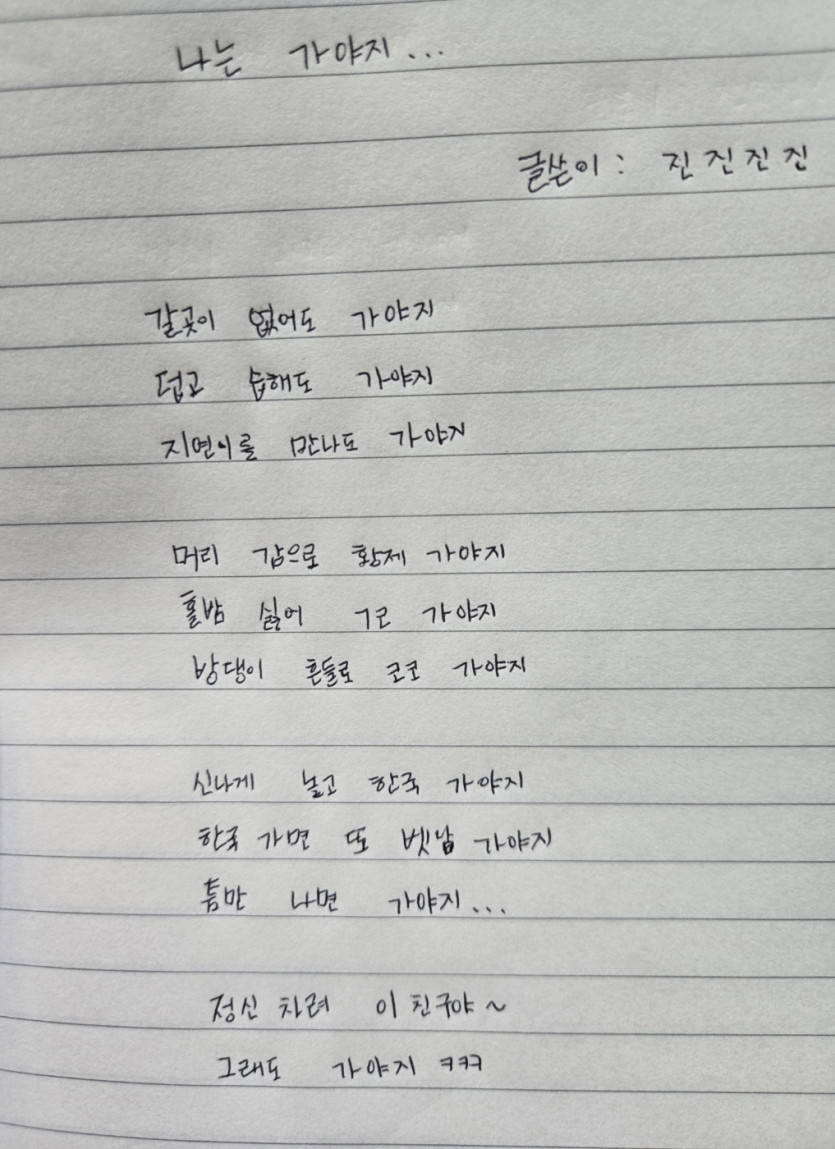 나는 가야지...
글쓴이: 진진진진
갈곳이 없어도 가야지
덥고 습해도 가야지
지연이를 만나도 가야지
머리 감으로 황제 가야지
홀밤 싫어 ㄱㄹ 가야지
방댕이 흔들로 코코 가야지
신나게 놀고 한국 가야지
한국 가면 또 벳남 가야지
틈만 나면 가야지...
정신 차려 이 친구야~
그래도 가야지 ㅋㅋㅋ